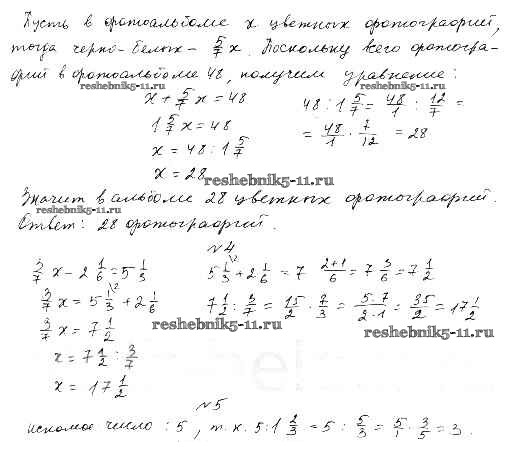 Пусть в фотоальбоме x цветных фотографий,
тогда черно-белых - 5/7 x. Поскольку всего фотогра-
фий в фотоальбоме 48, получим уравнение:
x + 5/7 x = 48
1 5/7 x = 48
x = 48 : 1 5/7
x = 28
48 : 1 5/7 = 48/1 : 12/7 =
= 48/1 · 7/12 = 28
reshebnik5-11.ru
Значит в альбоме 28 цветных фотографий.
reshebnik5-11.ru
Ответ: 28 фотографий.
№4
3/7 x - 2 1/6 = 5 1/3
3/7 x = 5 1/3 + 2 1/6
3/7 x = 7 1/2
x = 7 1/2 : 3/7
x = 17 1/2
5 1/3 \2 + 2 1/6 = 7 2+1/6 = 7 3/6 = 7 1/2
7 1/2 : 3/7 = 15/2 · 7/3 = 5·7/2·1 = 35/2 = 17 1/2
reshebnik5-11.ru
reshebnik5-11.ru
№5
искомое число : 5, т.к. 5 : 1 2/3 = 5 : 5/3 = 5/1 · 3/5 = 3.